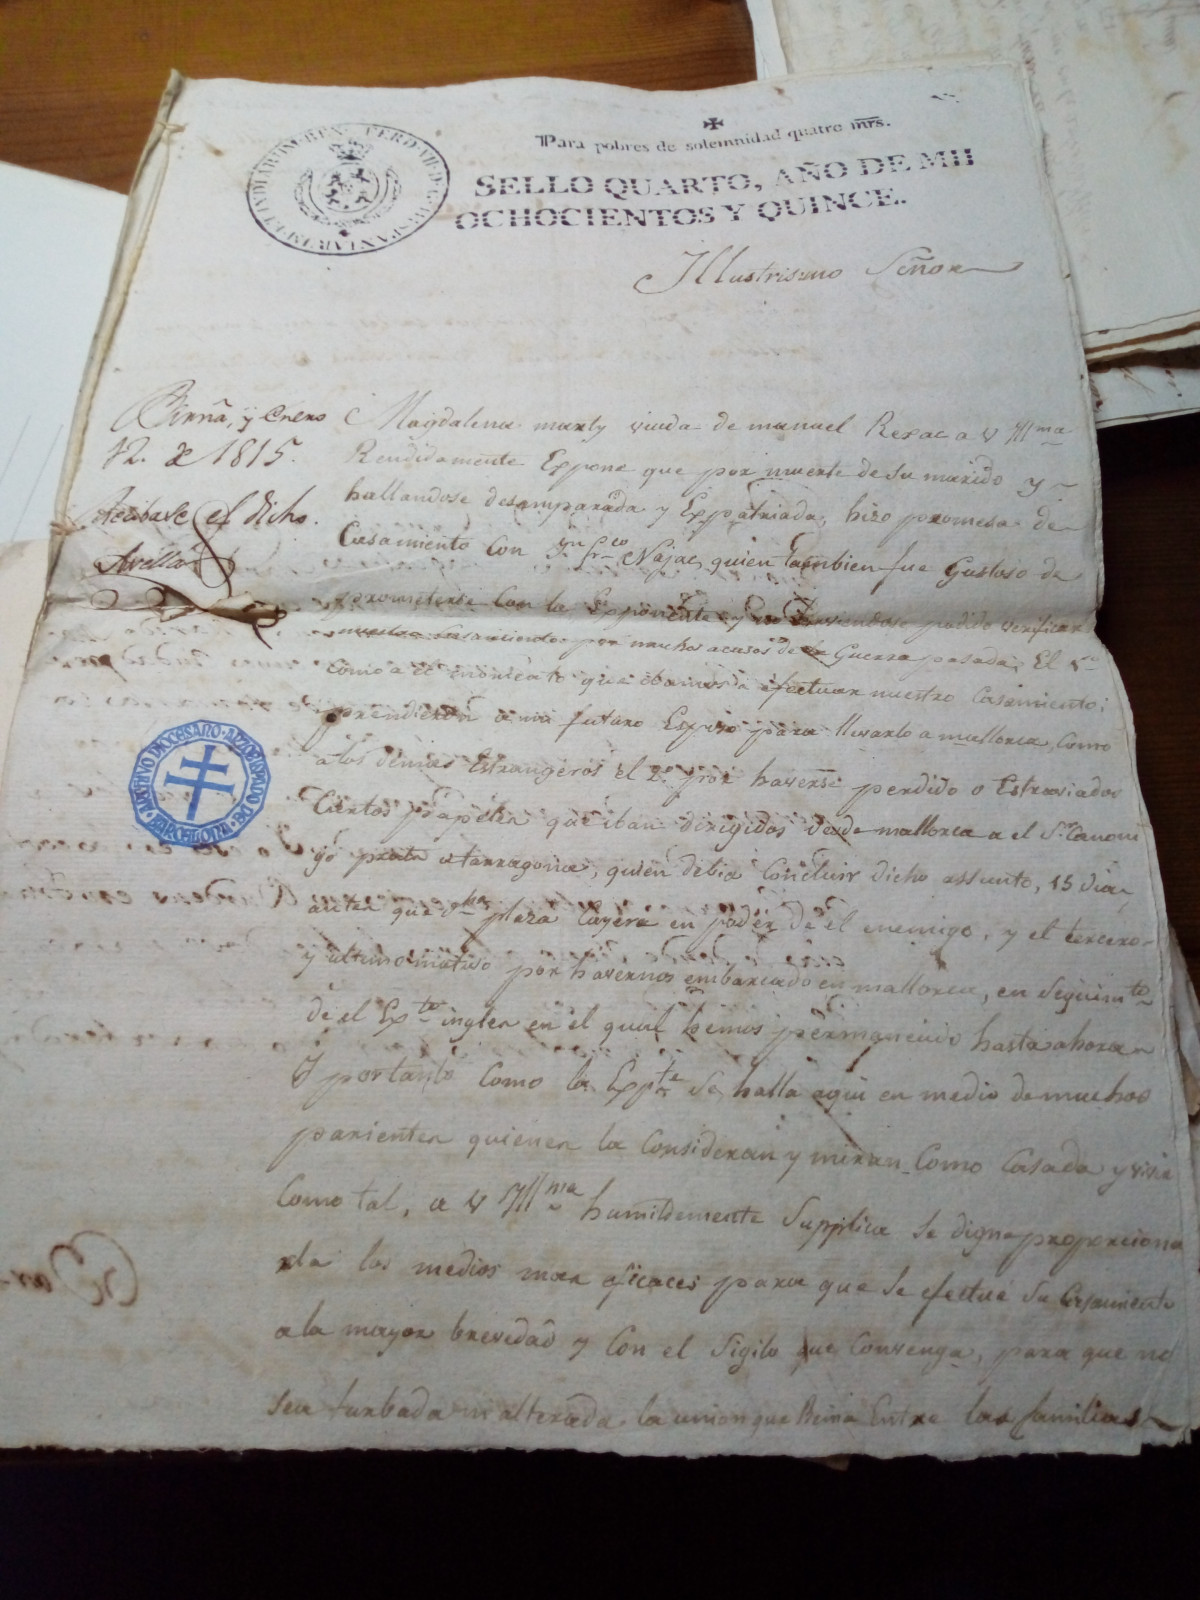 Para pobres de solemnidad quatro mrs.
SELLO QUARTO, AÑO DE MIL
OCHOCIENTOS Y QUINCE.
Illustrisimo Señor
Barna, y Enero
12. de 1815.
Recibase el dicho.
Avellá
Magdalena marly viuda de manuel Rexac a V Illma
Rendidamente Expone que por muerte de su marido y
hallandose desamparada y Expatriada, hizo promesa de
Casamiento con Jn Frco Najac, quien tambien fue Gustoso de
prometerse con la Exponente y no haviendose podido verificar
nuestro casamiento por muchos acasos de la Guerra pasada; El 1º
como a el momento que ibamos a efectuar nuestro Casamiento;
prendieron a mi futuro Esposo para llevarlo a mallorca, como
a los demas Estrangeros el 2º por haverse perdido o Estraviados
Ciertos papeles que iban dirigidos desde mallorca a el Sr Canoni
go prata a tarragona, quien debia Concluir dicho assunto, 15 dias
antes que dha plaza Cayera en poder de el enemigo, y el tercero
y ultimo motivo por havernos embarcado en mallorca, en Seguimto
de el Exto ingles en el qual hemos permanecido hasta ahora
Y portanto Como la Expte Se halla aqui en medio de muchos
parientes quienes la Consideran y miran Como Casada y vivir
Como tal, a V Illma humildemente Supplica Se digne proporciona
rla los medios mas eficaces para que Se efectue Su Casamiento
a la mayor brevedad y Con el Sigilo que Convenga, para que no
sea turbada ni alterada la union que Reina Entre las familias
ARCHIVO DIOCESANO · ARZOBISPADO DE BARCELONA ·